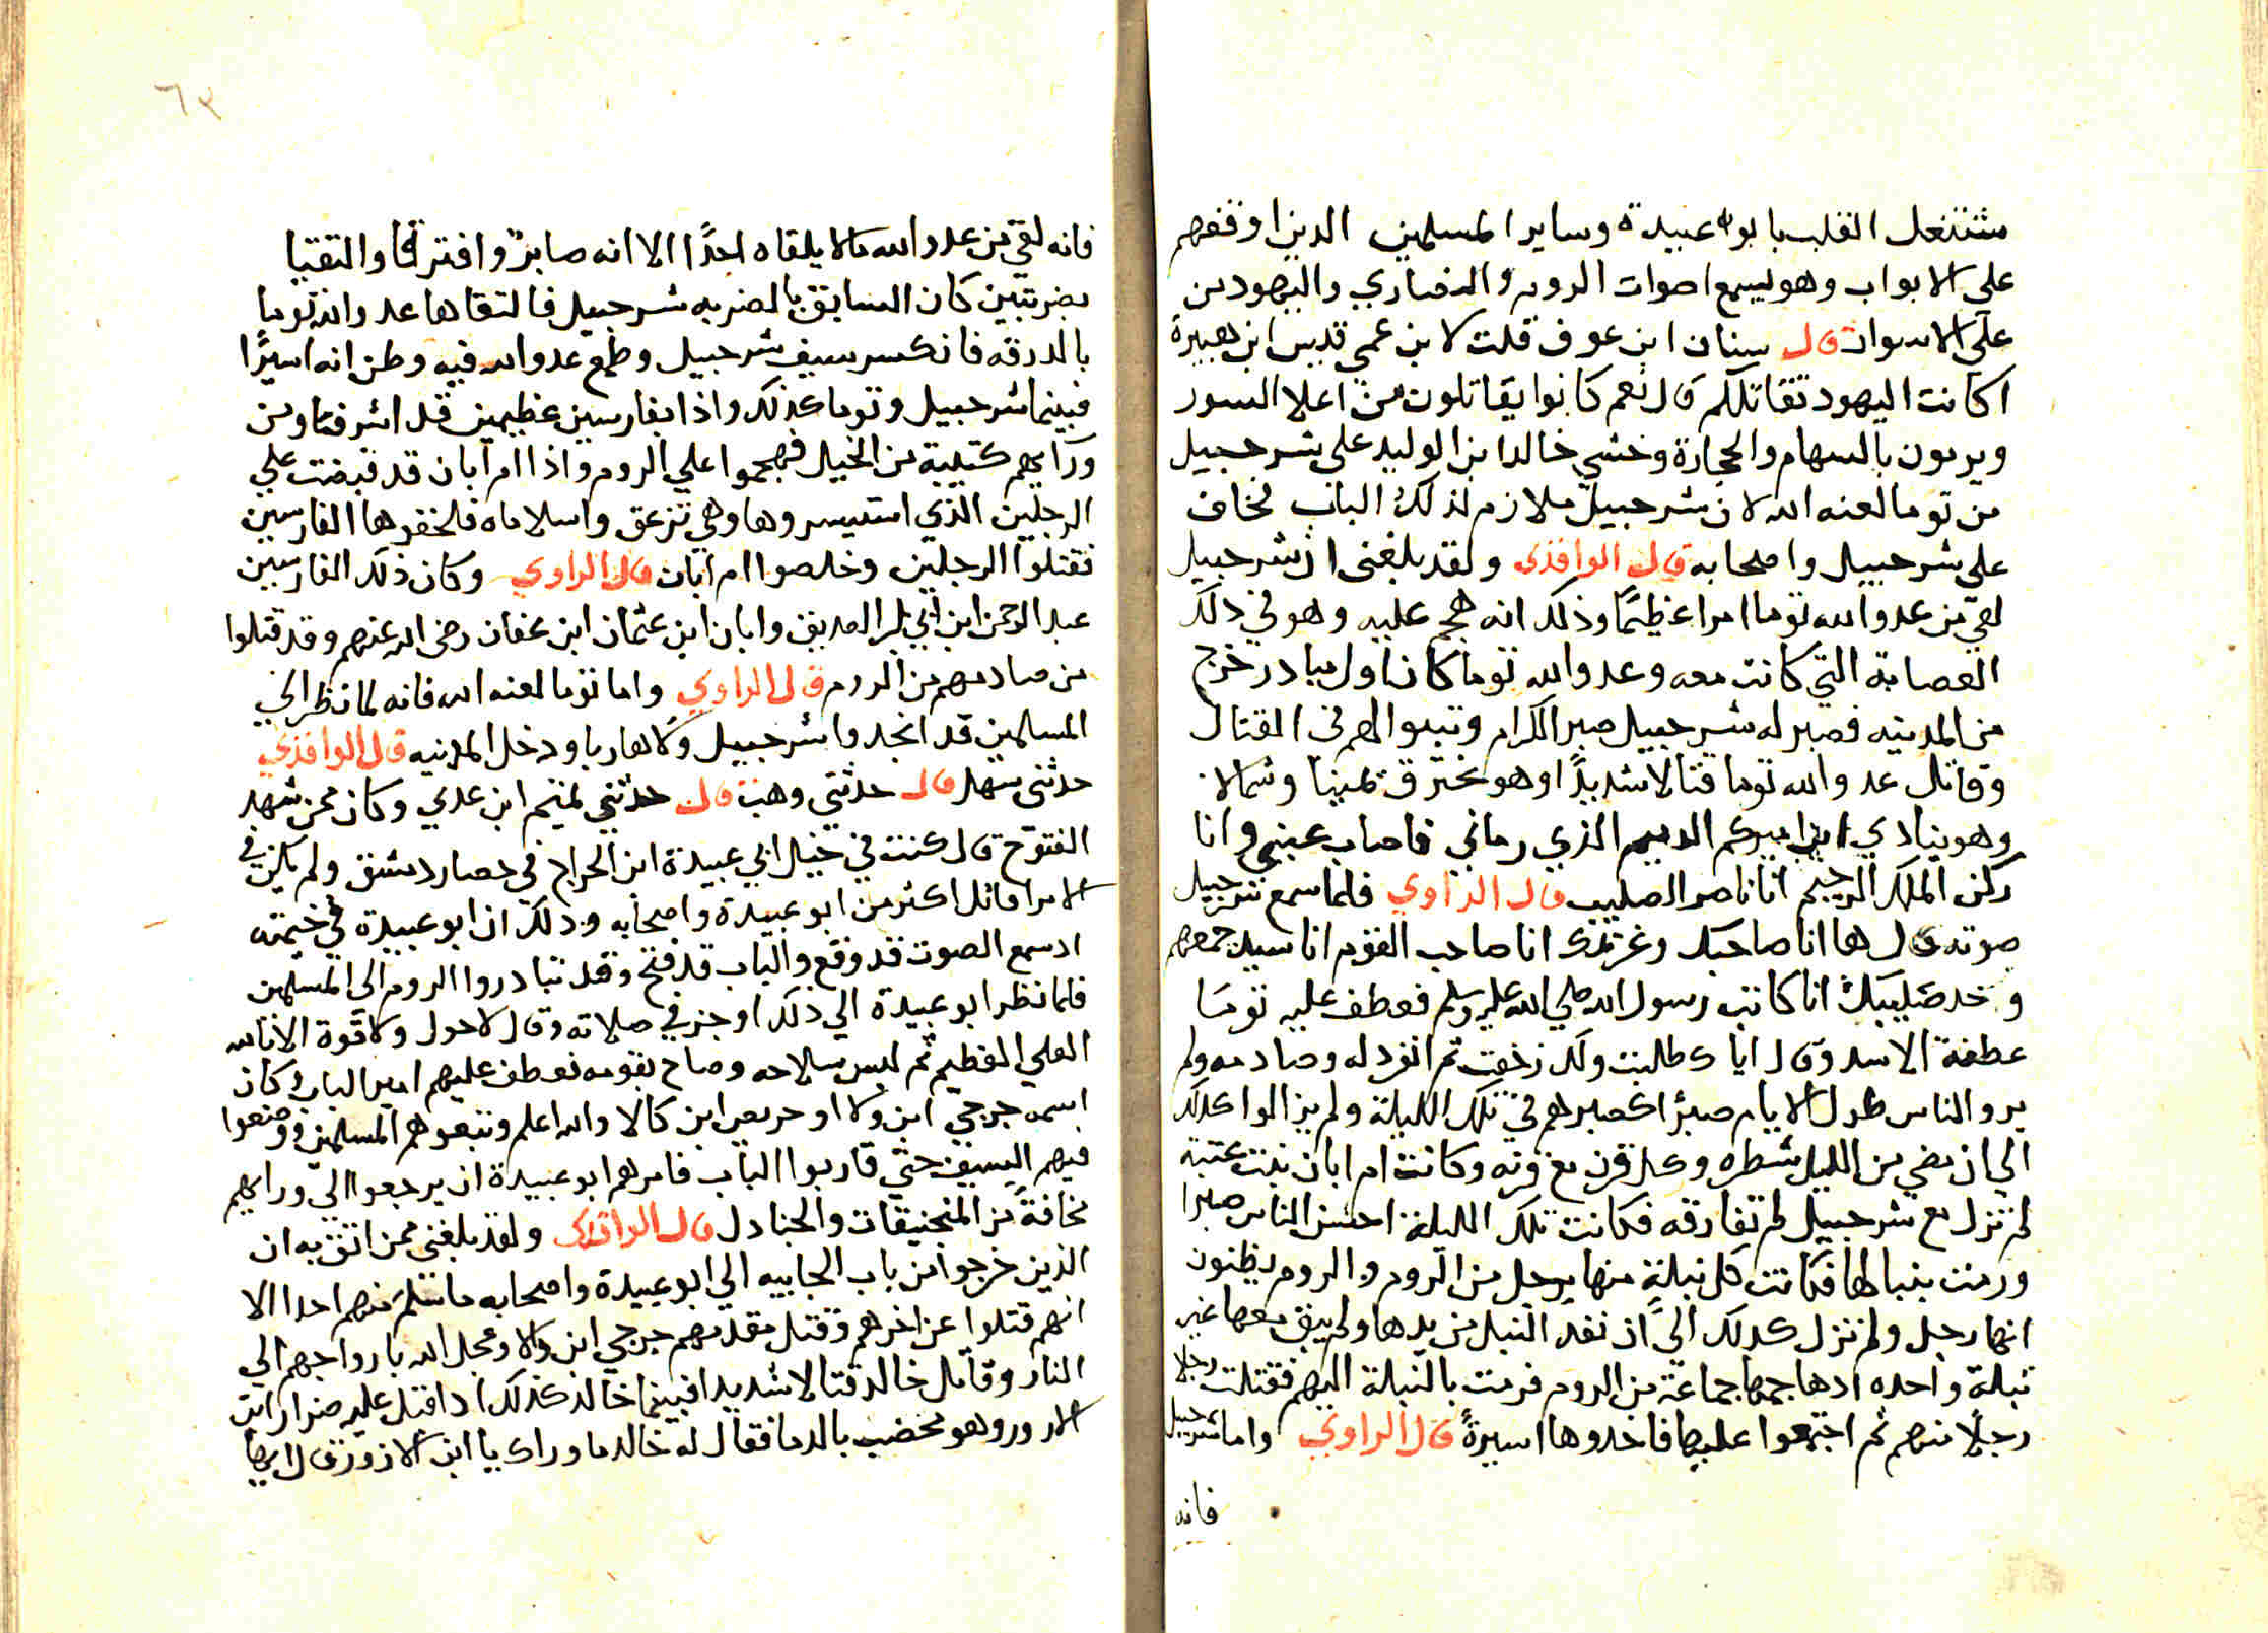 مشتغل القلب بابو عبيدة وساير المسلمين الدين اوقفهم
على الابواب وهو يسمع اصوات الروم والنصاري واليهود من
على الاسوار قال سنان ابن عوف قلت لابن عمي قيس ابن هبيرة
اكانت اليهود تقاتلكم قال نعم كانوا يقاتلون من اعلا السور
ويرمون بالسهام والحجارة وخشي خالد ابن الوليد على شرحبيل
من توما لعنه الله لان شرحبيل ملازم لذلك الباب فخاف
علي شرحبيل واصحابه قال الواقدي ولقد بلغني ان شرحبيل
لقي من عدو الله توما امرا عظيمًا وذلك انه هجم عليه وهو في ذلك
العصابة التي كانت معه وعدو الله توما كان اول مبادر خرج
من المدينه فصبر له شرحبيل صبر الكرام وتبتوا لهم في القتال
وقاتل عدو الله توما قتالا شديدًا وهو يخترق يمينا وشمالا
وهو ينادي اين اميركم الدميم الذي رماني فاصاب عيني وانا
ركن الملك الرحيم انا ناصر الصليب قال الراوي فلما سمع شرحبيل
صوته قال ها انا صاحبك وغريمك انا صاحب القوم انا مبيد جمعهم
وخد صليبك انا كاتب رسول الله صلي الله عليه وسلم فعطف عليه توما
عطفة الاسد وقال اياك طلبت ولك زحفت تم انفرد له وصادمه ولم
يرو الناس طول الايام صبرًا كصبرهم في تلك الليلة ولم يزالوا كدلك
الي ان مضي من الليل شطره وكل قرن مع قرنه وكانت ام ابان بنت عتبة
لم تزل مع شرحبيل لم تفارقه فكانت تلك الليلة احسن الناس صبرا
ورمت بنبالها فكانت كل نبلة منها برجل من الروم والروم يظنون
انها رجل ولم تزل كدلك الي ان نفد النبل من يدها ولم يبق معها غير
نبلة واحده ادهاجمها جماعة من الروم فرمت بالنبلة اليهم فقتلت رجلا
رجلا منهم ثم اجتمعوا عليها فاخدوها اسيرةً قال الراوي واما شرحبيل
فانه
٦٢
فانه لقي من عدو الله مالا يلقاه احدًا الا انه صابر وافترقا والتقيا
بضربتين كان السابق بالضربه شرحبيل فالتقاها عدو الله توما
بالدرقه فانكسر سيف شرحبيل وطمع عدو الله فيه وظن انه اسيرًا
فبينما شرحبيل وتوما كذلك واذا بفارسين عظيمين قد اشرفتا ومن
ورآيهم كتيبة من الخيل فهجموا علي الروم واذا ام ابان قد قبضت علي
الرجلين الذي استيسروها وهي تزعق واسلاماه فلحقوها الفارسين
فقتلوا الرجلين وخلصوا ام ابان قال الراوي وكان ذلك الفارسين
عبد الرحمن ابن ابي بكر الصديق وابان ابن عثمان ابن عفان رضي الله عنهم وقد قتلوا
من صادمهم من الروم قال الراوي واما توما لعنه الله فانه لما نظر الي
المسلمين قد انجدوا شرحبيل ولا هاربا ودخل المدنيه قال الواقدي
حدثني سهل قال حدثني وهب قال حدثني تميم ابن عدي وكان ممن شهد
الفتوح قال كنت في خيل ابي عبيدة ابن الجراح في حصار دمشق ولم يكن في
الامرا قاتل اكثر من ابو عبيدة واصحابه ودلك ان ابو عبيدة في خيمته
ادسمع الصوت قد وقع والباب قد فتح وقد تبادروا الروم الي المسلمين
فلما نظر ابو عبيدة الي دلك اوجز في صلاته وقال لاحول ولا قوة الا بالله
العلي العظيم ثم لبس سلاحه وصاح بقومه فعطف عليهم امير الباب وكان
اسمه جرجي ابن ولا او جريس ابن كالا والله اعلم وتبعوهم المسلمين ووضعوا
فيهم السيف حتي قاربوا الباب فامرهم ابو عبيدة ان يرجعوا الي ورايهم
مخافةً من المنجنيقات والجنادل قال الواقدي ولقد بلغني ممن اثق به ان
الذين خرجوا من باب الجابيه الي ابو عبيدة واصحابه ما سلم منهم احدا الا
انهم قتلوا عن اخرهم وقتل مقدمهم جرجي ابن ولا وعجل الله بارواحهم الي
النار وقاتل خالد قتالا شديدا فبينما خالد كذلك اد اقبل عليه ضرار ابن
الازور وهو مخضب بالدما فقال له خالد ما وراك يا ابن الازور قال ايها